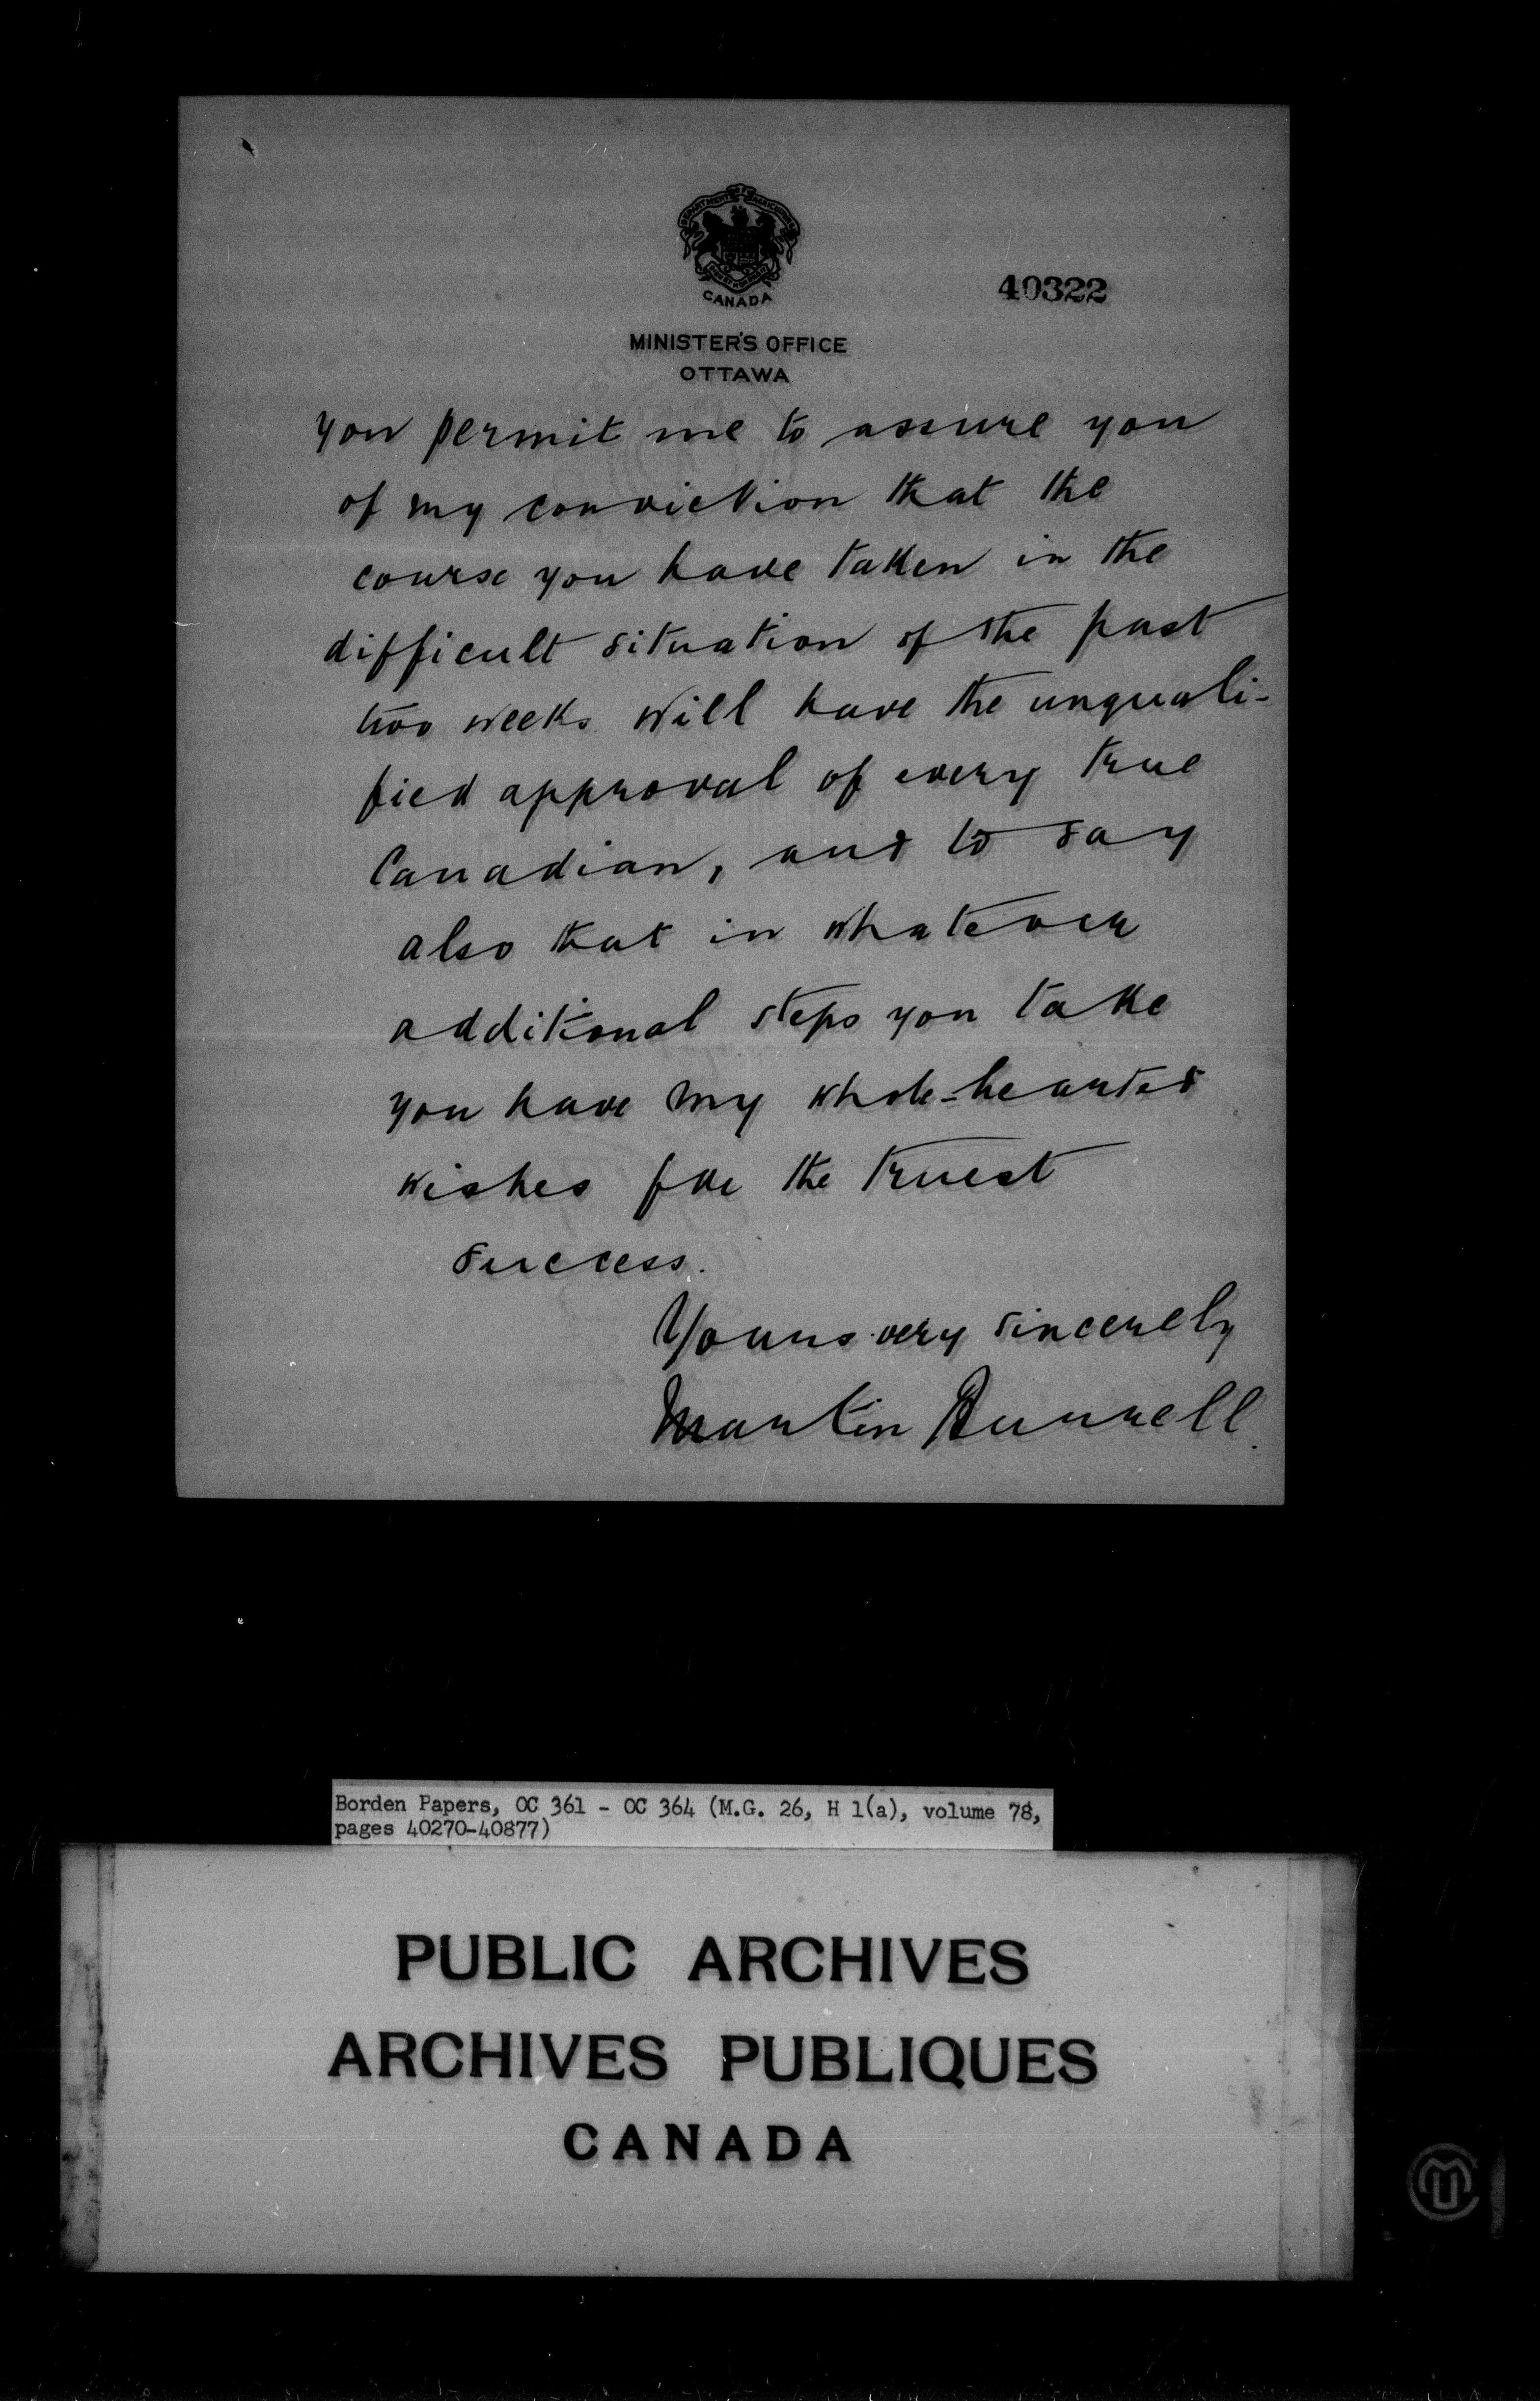 DEPARTMENT OF AGRICULTURE
CANADA
40322
MINISTER'S OFFICE
OTTAWA
you permit me to assure you
of my conviction that the
course you have taken in the
difficult situation of the past
two weeks will have the unquali-
fied approval of every true
Canadian, and to say
also that in whatever
additional steps you take
you have my whole-hearted
wishes for the truest
success.
Yours very sincerely
Martin Burrell.
Borden Papers, OC 361 - OC 364 (M.G. 26, H 1(a), volume 78,
pages 40270-40877)
PUBLIC ARCHIVES
ARCHIVES PUBLIQUES
CANADA